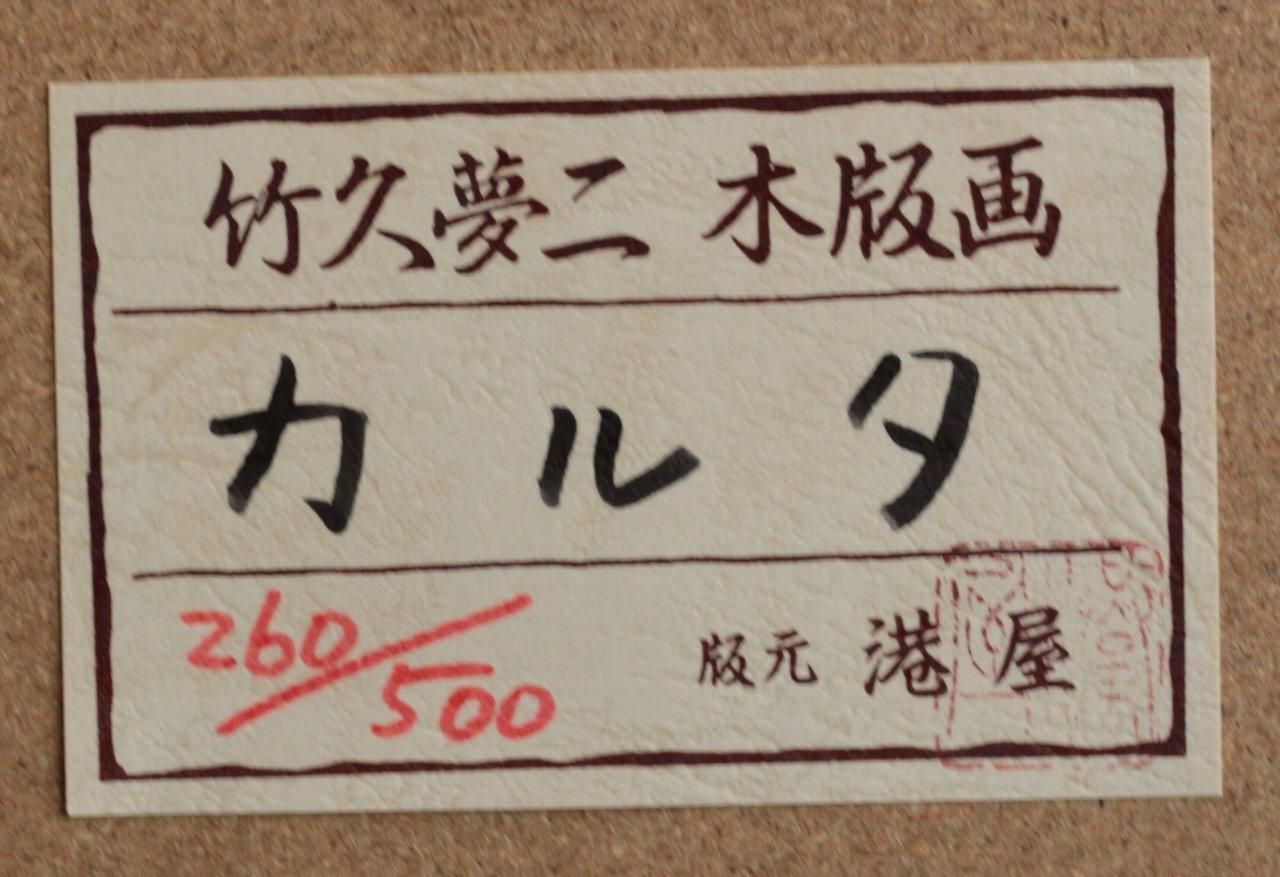 竹久夢二 木版画
カルタ
260/500
版元 港屋